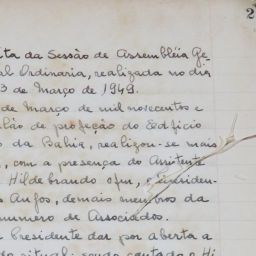 2
ta da Sessão de Assembléia Ge-
al Ordinaria, realizada no dia
3 de Março de 1949.
de Março de mil novecentos e
lão de projeção do Edificio
o da Bahia, realizou-se mais
, com a presença do Assistente
Hildebrando ofm,
s Anjos, demais membros da
numero de Associados.
Presidente dar por aberta a
do ritual; sendo cantado o Hi